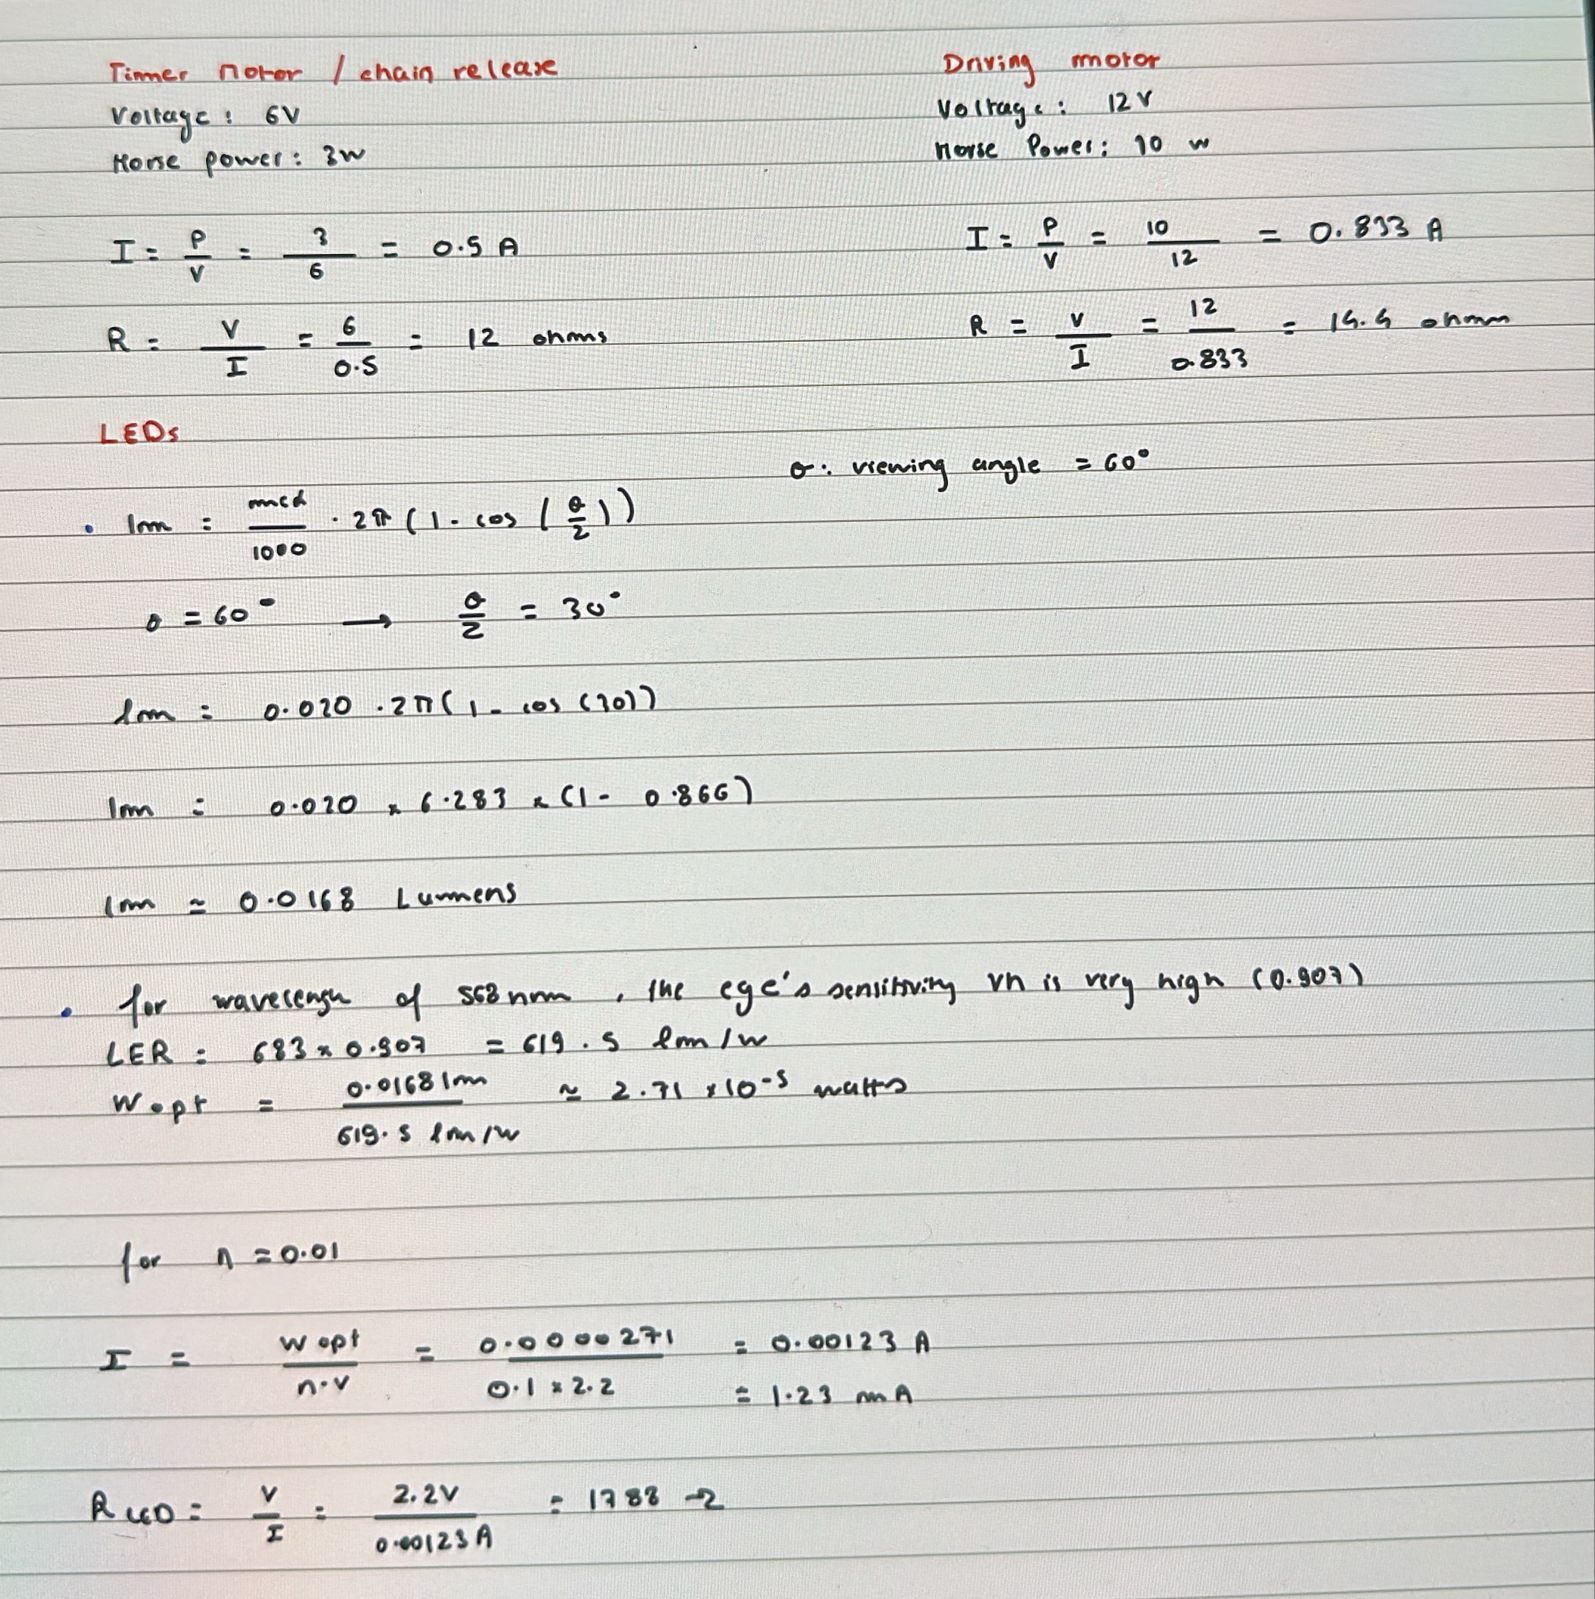 Timmer motor / chain release
Voltage : 6V
Horse power : 3w
I = P/V = 3/6 = 0.5 A
R = V/I = 6/0.5 = 12 ohms
Driving motor
Voltage : 12V
Horse Power : 10 w
I = P/V = 10/12 = 0.833 A
R = V/I = 12/0.833 = 14.4 ohmm
LEDs
θ : viewing angle = 60°
• lm = mcd/1000 · 2π (1 - cos (θ/2))
θ = 60° → θ/2 = 30°
lm = 0.020 · 2π (1 - cos (30))
lm = 0.020 × 6.283 × (1 - 0.866)
lm ≈ 0.0168 Lumens
• for wavelength of 568 nm , the eye's sensitivity vn is very high (0.907)
LER = 683 × 0.907 = 619.5 lm/w
W opt = 0.0168 lm / 619.5 lm/w ≈ 2.71 × 10-5 watts
for n = 0.01
I = W opt / n·v = 0.0000271 / 0.1 × 2.2 = 0.00123 A
= 1.23 mA
R LED = V/I = 2.2V / 0.00123 A = 1788 Ω